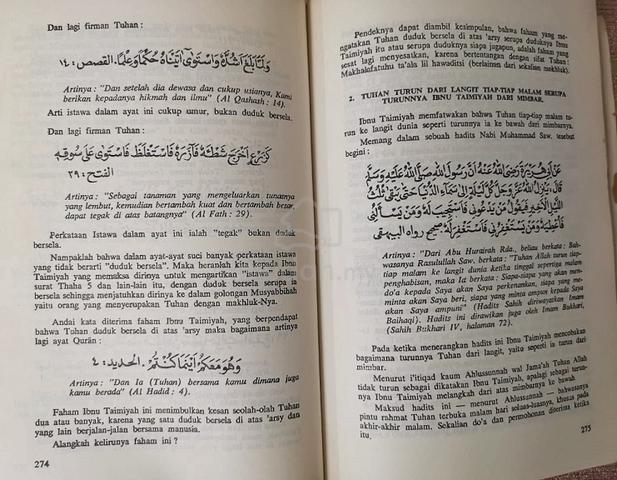 Dan lagi firman Tuhan :
وَلَمَّا بَلَغَ أَشُدَّهُ وَاسْتَوَى آتَيْنَاهُ حُكْمًا وَعِلْمًا. القصص : ١٤
Artinya : "Dan setelah dia dewasa dan cukup usianya, Kami
berikan kepadanya hikmah dan ilmu" (Al Qashash : 14).
Arti istawa dalam ayat ini cukup umur, bukan duduk bersela.
Dan lagi firman Tuhan :
كَزَرْعٍ أَخْرَجَ شَطْئَهُ فَآزَرَهُ فَاسْتَغْلَظَ فَاسْتَوَى عَلَى سُوقِهِ
الفتح : ٢٩
Artinya : "Sebagai tanaman yang mengeluarkan tunasnya
yang lembut, kemudian bertambah kuat dan bertambah besar,
dapat tegak di atas batangnya" (Al Fath : 29).
Perkataan Istawa dalam ayat ini ialah "tegak" bukan duduk
bersela.
Nampaklah bahwa dalam ayat-ayat suci banyak perkataan istawa
yang tidak berarti "duduk bersela". Maka heranlah kita kepada Ibnu
Taimiyah yang memaksa dirinya untuk mengartikan "istawa" dalam
surat Thaha 5 dan lain-lain itu, dengan duduk serupa duduknya ia
bersela sehingga menjatuhkan dirinya ke dalam golongan Musyabbihah
yaitu orang yang menyerupakan Tuhan dengan makhluk-Nya.
Andai kata diterima faham Ibnu Taimiyah, yang berpendapat
bahwa Tuhan duduk bersela di atas 'arsy maka bagaimana artinya
lagi ayat Qurän :
وَهُوَ مَعَكُمْ أَيْنَمَا كُنْتُمْ. الحديد : ٤
Artinya : "Dan Ia (Tuhan) bersama kamu dimana juga
kamu berada" (Al Hadid : 4).
Faham Ibnu Taimiyah ini menimbulkan kesan seolah-olah Tuhan
dua atau banyak, karena yang satu duduk bersela di atas 'arsy dan
yang lain berjalan-jalan bersama manusia.
Alangkah kelirunya faham ini ?
274
Pendeknya dapat diambil kesimpulan, bahwa faham yang me-
ngatakan Tuhan duduk bersela di atas 'arsy serupa duduknya Ibnu
Taimiyah itu atau serupa duduknya siapa jugapun, adalah faham yang
sesat lagi menyesatkan, karena bertentangan dengan sifat Tuhan :
Makhalafatuhu ta'ala lil hawaditsi (berlainan dari sekalian makhluk).
2. TUHAN TURUN DARI LANGIT TIAP-TIAP MALAM SERUPA
TURUNNYA IBNU TAIMIYAH DARI MIMBAR.
Ibnu Taimiyah memfatwakan bahwa Tuhan tiap-tiap malam tu-
run ke langit dunia seperti turunnya ia ke bawah dari mimbarnya.
Memang dalam sebuah hadits Nabi Muhammad Saw. tesebut
begini :
عَنْ أَبِي هُرَيْرَةَ رَضِيَ اللهُ عَنْهُ أَنَّ رَسُولَ اللهِ صَلَّى اللهُ عَلَيْهِ وَسَلَّمَ
قَالَ، يَنْزِلُ اللهُ عَزَّ وَجَلَّ كُلَّ لَيْلَةٍ إِلَى سَمَاءِ الدُّنْيَا حَتَّى يَبْقَى ثُلُثُ
اللَّيْلِ الأَخِيرِ فَيَقُولُ مَنْ يَدْعُونِي فَأَسْتَجِيبَ لَهُ وَمَنْ يَسْأَلُنِي
فَأُعْطِيَهُ وَمَنْ يَسْتَغْفِرُنِي فَأَسْتَغْفِرَ لَهُ صحيح رواه البيهقى
Artinya : "Dari Abu Hurairah Rda., beliau berkata : Bah-
wasanya Rasulullah Saw. berkata : "Tuhan Allah turun tiap-
tiap malam ke langit dunia ketika tinggal sepertiga malam
penghabisan, maka Ia berkata : Siapa-siapa yang akan men-
do'a kepada Saya akan Saya perkenankan, siapa yang me-
minta akan Saya beri, siapa yang minta ampun kepada Saya
akan Saya ampuni" (Hadits Sahih diriwayatkan Imam
Baihaqi). Hadits ini dirawikan juga oleh Imam Bukhari,
(Sahih Bukhari IV, halaman 72).
Pada ketika menerangkan hadits ini Ibnu Taimiyah mencobakan
bagaimana turunnya Tuhan dari langit, yaitu seperti ia turun dari
mimbar.
Menurut i'itiqad kaum Ahlussunnah wal Jama'ah Tuhan Allah
turun tidak sebagai dikatakan Ibnu Taimiyah, apalagi sebagai turun-
nya Ibnu Taimiyah melangkah dari atas mimbarnya ke bawah.
Maksud hadits ini — menurut Ahlussunnah — bahwasanya
pintu rahmat Tuhan terbuka malam hari seluas-luasnya, khusus pada
akhir-akhir malam. Sekalian do'a dan permohonan diterima ketika
itu.
275